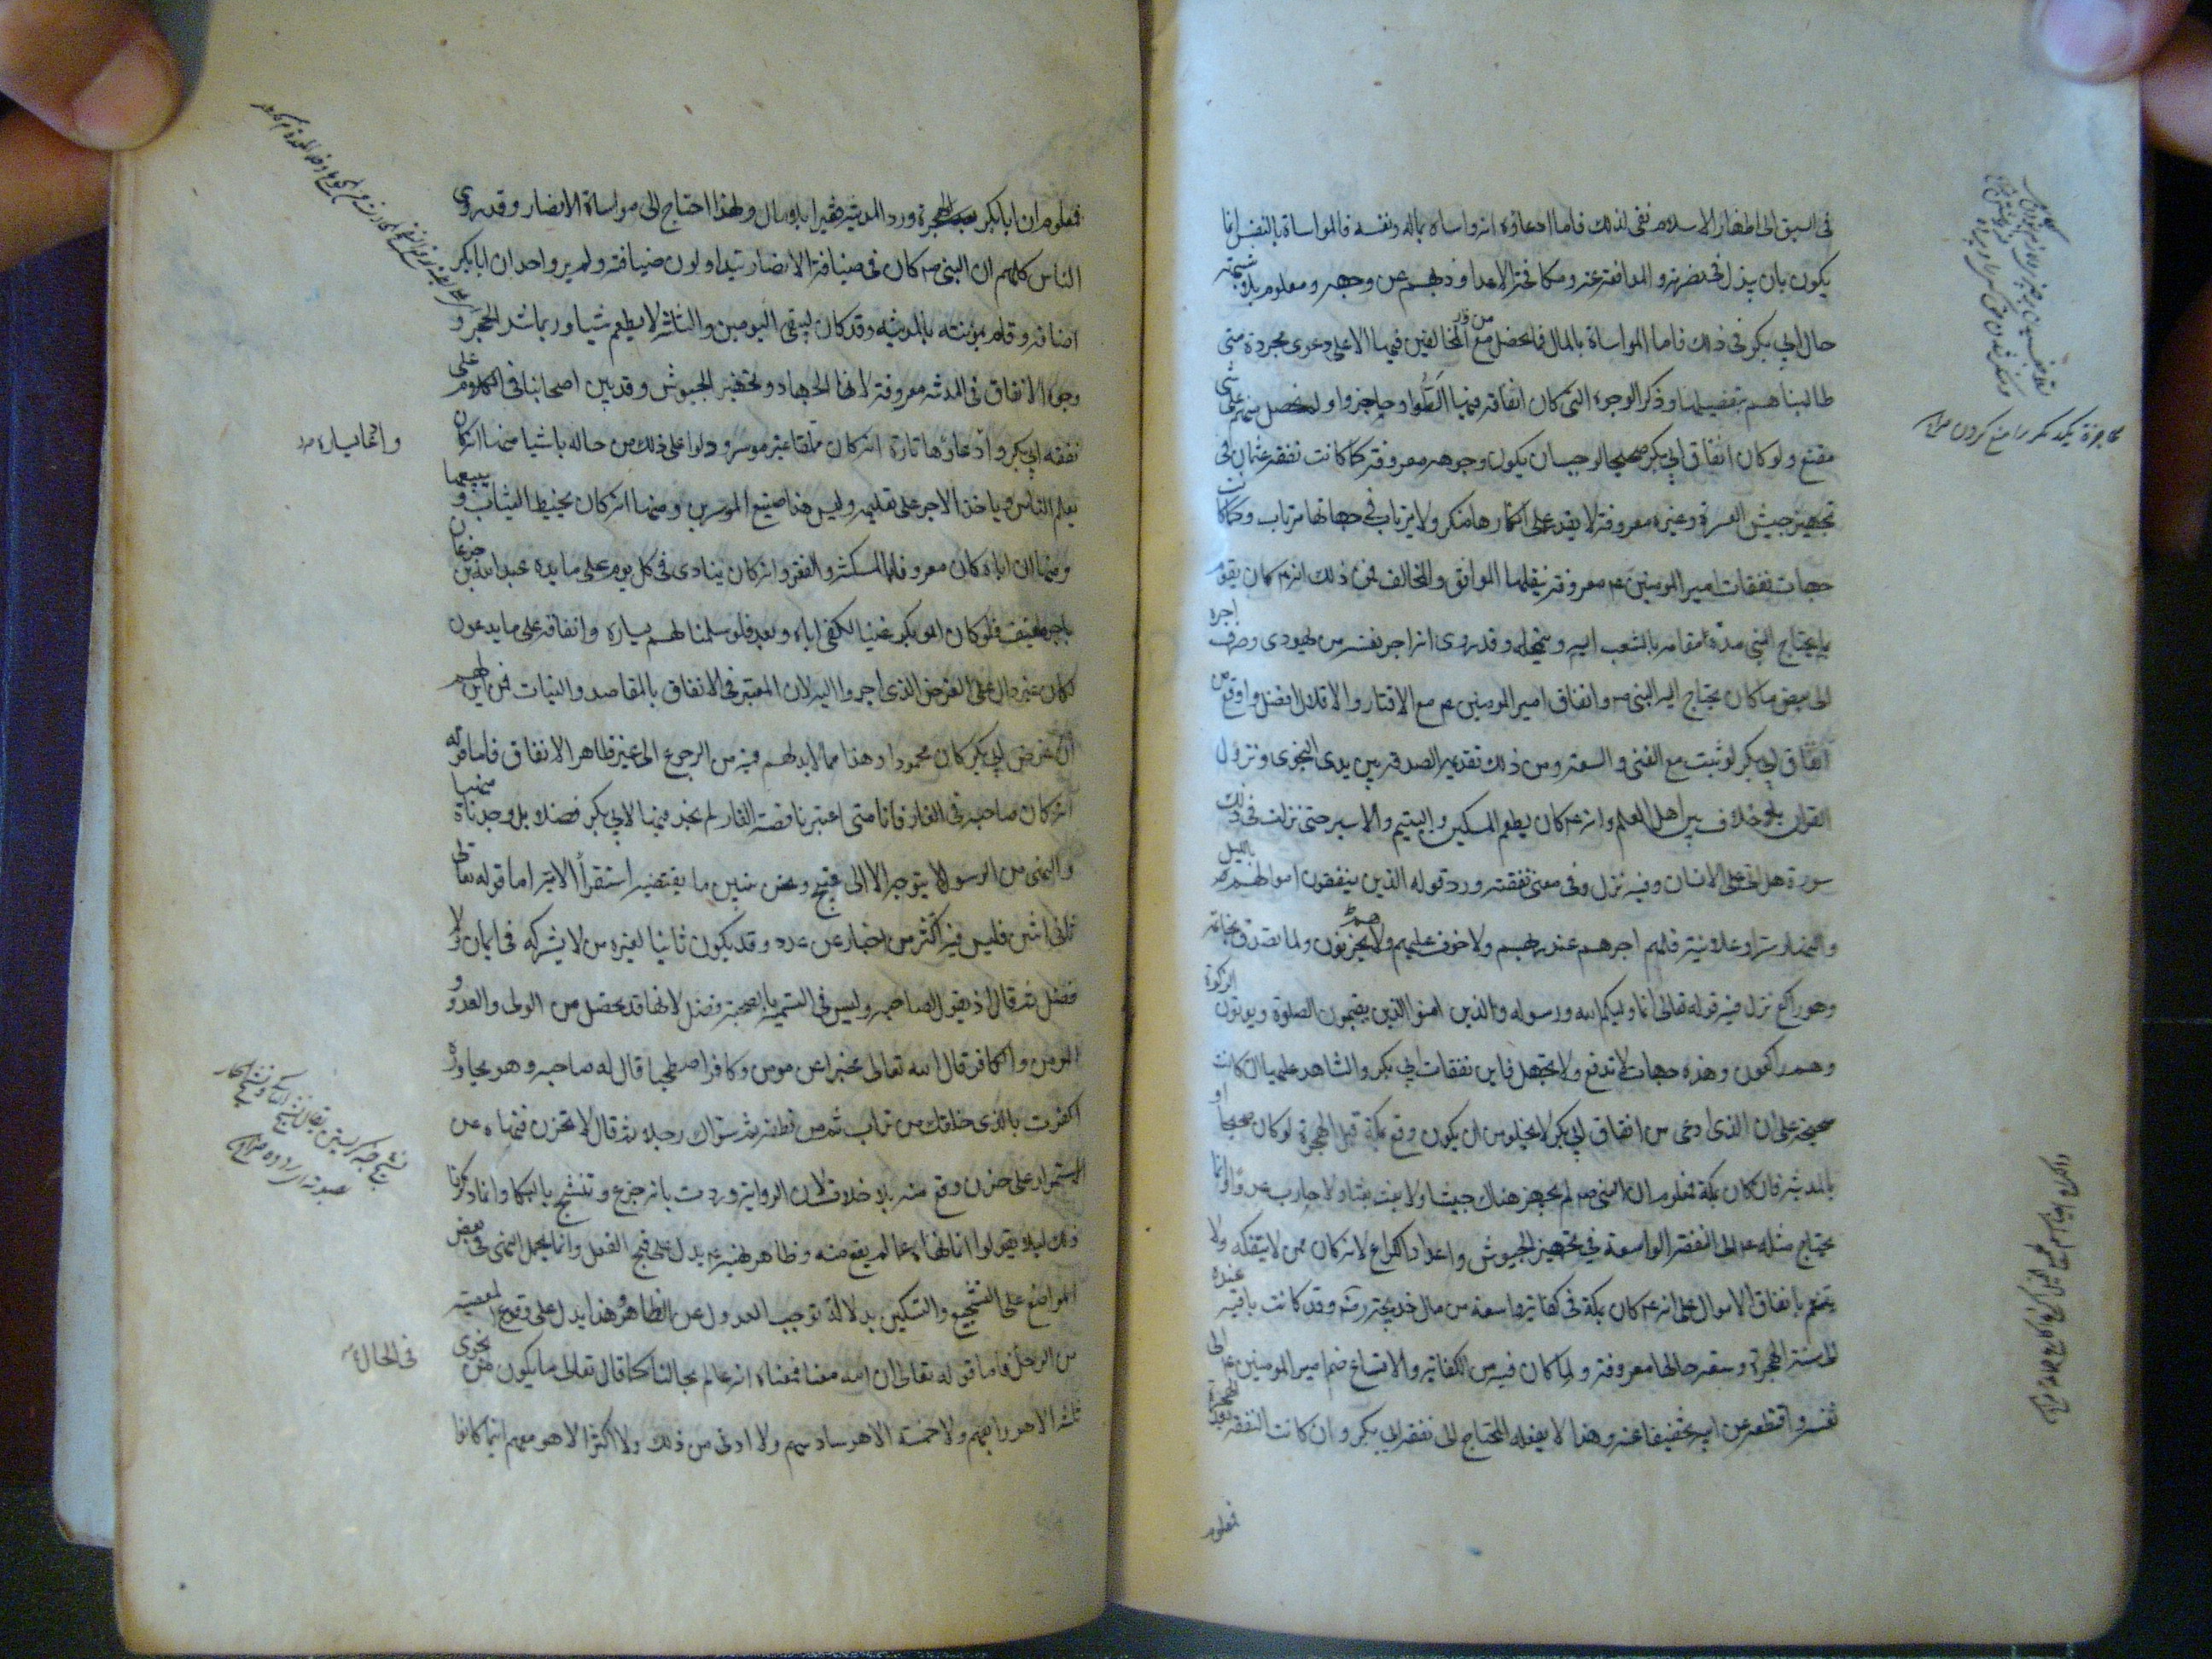 في السبق الى اظهار الاسلام نفى لذلك فاما ادعاؤه انه واساه بماله ونفسه فالمواساة بالنفس انما
يكون بان يبذل في نصرته والمدافعة عنه ومكافحة الاعدا وذبهم عن وجهه ومعلوم
حال ابي بكر في ذلك فاما المواساة بالمال فما يحصل مع المخالفين فيها الا على دعوى مجردة متى
طالبناهم بتفصيلها وذكر الوجوه التي كان انفاقه فيها وحاجزوا ولم يحصل منهم على شي
مقنع ولو كان انفاق ابي بكر صحيحا لوجب ان يكون وجوهه معروفة كما كانت نفقة عثمان في
تجهيز جيش العسرة وغيره معروفة لا يقدر على انكارها منكر ولا يرتاب في جهاتها مرتاب وكما كانت
جهات نفقات امير المومنين ع م معروفة ينقلها الموافق والمخالف فمن ذلك انه ع م كان يقوم
بما يحتاج النبي مدة مقامه بالشعب اليه ويتمحله وقد روى انه اجر نفسه من يهودى وصرف اجره
الى بعض ما كان يحتاج اليه النبي ص م وانفاق امير المومنين ع م مع الاقتار والاقلال افضل واوقع من
انفاق ابي بكر لو ثبت مع الغنى والسعة ومن ذلك تقديمه الصدقة بين يدى النجوى ونزول
القران بلا خلاف بين اهل العلم وانه ع م كان يطعم المسكين واليتيم والاسير حتى نزلت في ذلك
سورة هل اتى على الانسان وفيه نزل وفي معنى نفقته ورد قوله الذين ينفقون اموالهم بالليل
والنهار سرا وعلانية فلهم اجرهم عند ربهم ولا خوف عليهم ولا هم يحزنون ولما تصدق بخاتمه
وهو راكع نزل فيه قوله تعالى انما وليكم الله ورسوله والذين امنوا الذين يقيمون الصلوة ويوتون الزكوة
وهم راكعون وهذه جهات لا تدفع ولا تجهل فاين نفقات ابي بكر والشاهد عليها ان كانت
صحيحة على ان الذى ادعى من انفاق ابي بكر لا يخلو من ان يكون وقع بمكة قبل الهجرة لو كان صحيحا او
بالمدينة فان كان بمكة فمعلوم ان النبي ص م لم يجهز هناك جيشا ولا بعث بعثا ولا حارب عدوا وانما
يحتاج مثله ع م الى النفقة الواسعة في تجهيز الجيوش واعداد الكراع لانه كان ممن لا يتفكه ولا
يتنعم بانفاق الاموال على انه ع م كان بمكة في كفاية واسعة من مال خديجة رض وقد كانت باقية عنده
الى سنة الهجرة وسعة حالها معروفة ولما كان فيه من الكفاية والاتساع ضم امير المومنين ع م الى
نفسه واقتطعه عن ابيه تخفيفا عنه وهذا لا يفعله المحتاج الى نفقة ابي بكر وان كانت النفقة بعد الهجرة
فمعلوم
فمعلوم ان ابا بكر بعد الهجرة ورد المدينة فقيرا بلا مال ولهذا احتاج الى مواساة الانصار وقد روى
الناس كلهم ان النبي ص م كان في ضيافة الانصار يتداولون ضيافته ولم يرو احد ان ابا بكر
اضافه وقام بمؤنته بالمدينة وقد كان ليبقى اليومين والثلثة لا يطعم شيا وربما شد الحجر و
وجوه الانفاق في المدينة معروفة لانها الجهاد وتجهيز الجيوش وقد بين اصحابنا في الكلام على
نفقه ابي بكر وادعاؤها تارة انه كان مملقا غير موسر ودلوا على ذلك من حاله باشيا منها انه كان
وانما يساره
يعلم الناس وياخذ الاجر على تعليمه وليس هذا صنيع الموسرين ومنها انه كان يخيط الثياب ويبيعها
ومنها ان اباه كان معروفا بالمسكنة والفقر وانه كان ينادى في كل يوم على مايدة عبد الله بن جذعان
باجر طفيف فلو كان ابو بكر غنيا لكفى اباه وبعد فلو سلمنا لهم يساره وانفاقه على ما يدعون
لكان غير دال على الغرض الذى اجروا اليه لان المعتبر في الانفاق بالمقاصد والنيات فمن اين لهم
ان غرض ابي بكر كان محمودا وهذا مما لا بد لهم فيه من الرجوع الى غير ظاهر الانفاق فاما قوله
انه كان صاحبه في الغار فانا متى اعتبرنا قصة الغار لم نجد فيها لابي بكر فضلا بل وجدناه منهيا
والنهى من الرسول لا يتوجه الا الى قبيح ونحن نبين ما يقتضيه استقرأ الاية اما قوله تعالى
ثاني اثنين فليس فيه اكثر من اخبار عن عدد وقد يكون ثانيا لغيره من لا يشركه في ايمان ولا
فضل ثم قال اذ يقول لصاحبه وليس في التسمية بالصحبة فضل لانها قد تحصل من الولى والعدو و
المومن والكافر قال الله تعالى مخبرا عن مومن وكافر اصطحبا قال له صاحبه وهو يحاوره
اكفرت بالذى خلقك من تراب ثم من نطفة ثم سواك رجلا ثم قال لا تحزن فنهاه عن
الاستمرار على حزن وقع منه بلا خلاف لان الرواية وردت بانه جزع ونشج بالبكا وانما ذكرنا
ذلك ليلا يقولوا انما نهاه عما لم يقع منه وظاهر نهيه ع م يدل على قبح الفعل وانما يحمل النهى في بعض
المواضع على التشجيع والتسكين بدلالة توجب العدول عن الظاهر وهذا يدل على وقوع المعصية
من الرجل فاما قوله تعالى ان الله معنا فمعناه انه عالم بحالنا كما قال تعالى ما يكون من نجوى
في الحال
ثلثة الا هو رابعهم ولا خمسة الا هو سادسهم ولا ادنى من ذلك ولا اكثر الا هو معهم اينما كانوا